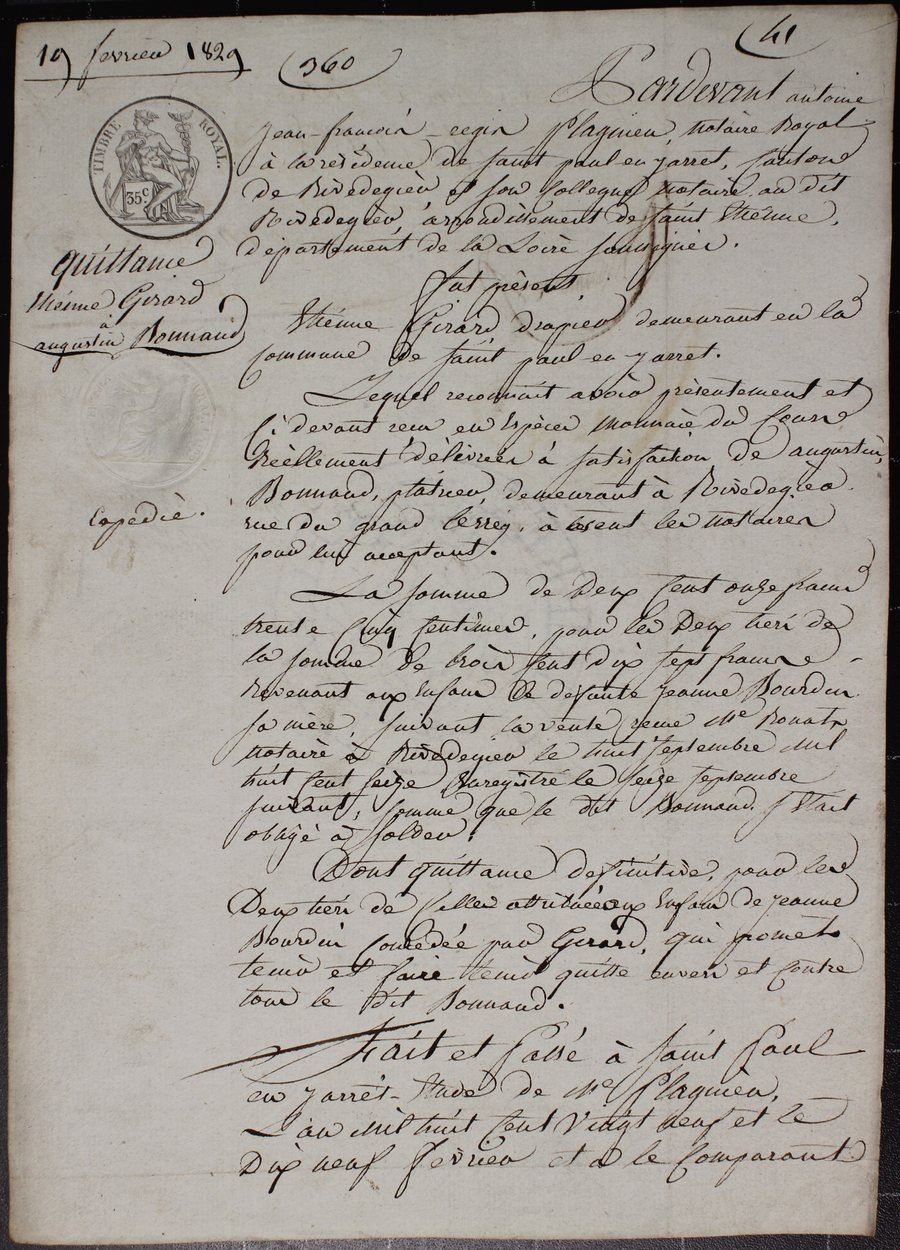 19 fevrier 1829
(360
(41
Pardevant antoine
jean-francois-regis Plagnieu, Notaire Royal
à la résidence de saint paul en jarret, Canton
de Rivedegier et son Collegue Notaire au dit
Rivedegier, arrondissement de saint Etienne,
département de la Loire soussignés.
TIMBRE ROYAL.
35c
Quittance
Etienne Girard
à
augustin Bonnand
fut présent
Etienne Girard drapier demeurant en la
Commune de saint paul en jarret.
Lequel reconnait avoir présentement et
Ci devant recu en Espèces monnaie du Cours
Réellement délivrées à satisfaction de augustin
Bonnand, platrier, demeurant à Rivedegier
rue du grand à les Notaires
pour lui acceptant.
Expedié.
La somme de Deux Cent onze francs
trente Cinq Centimes, pour les Deux tiers de
la somme de trois Cent Dix sept francs
Revenant aux Enfans de défunte Jeanne Bourdin
sa mère, suivant la vente, recue Me
Notaire à Rivedegier le huit Septembre Mil
huit Cent seize Enregistré le seize septembre
suivant, somme que le dit Bonnand s'Etait
obligé à solder.
Dont quittance définitive, pour les
Deux tiers de Celles attribuées aux Enfans de Jeanne
Bourdin Concédée par Girard, qui promet
tenir et faire tenir quitte envers et Contre
tous le dit Bonnand.
Fait et Passé à Saint Paul
en jarret-Etude de Me Plagnieu,
L'an Mil huit Cent Vingt neuf et le
Dix neuf fevrier et a le Comparant